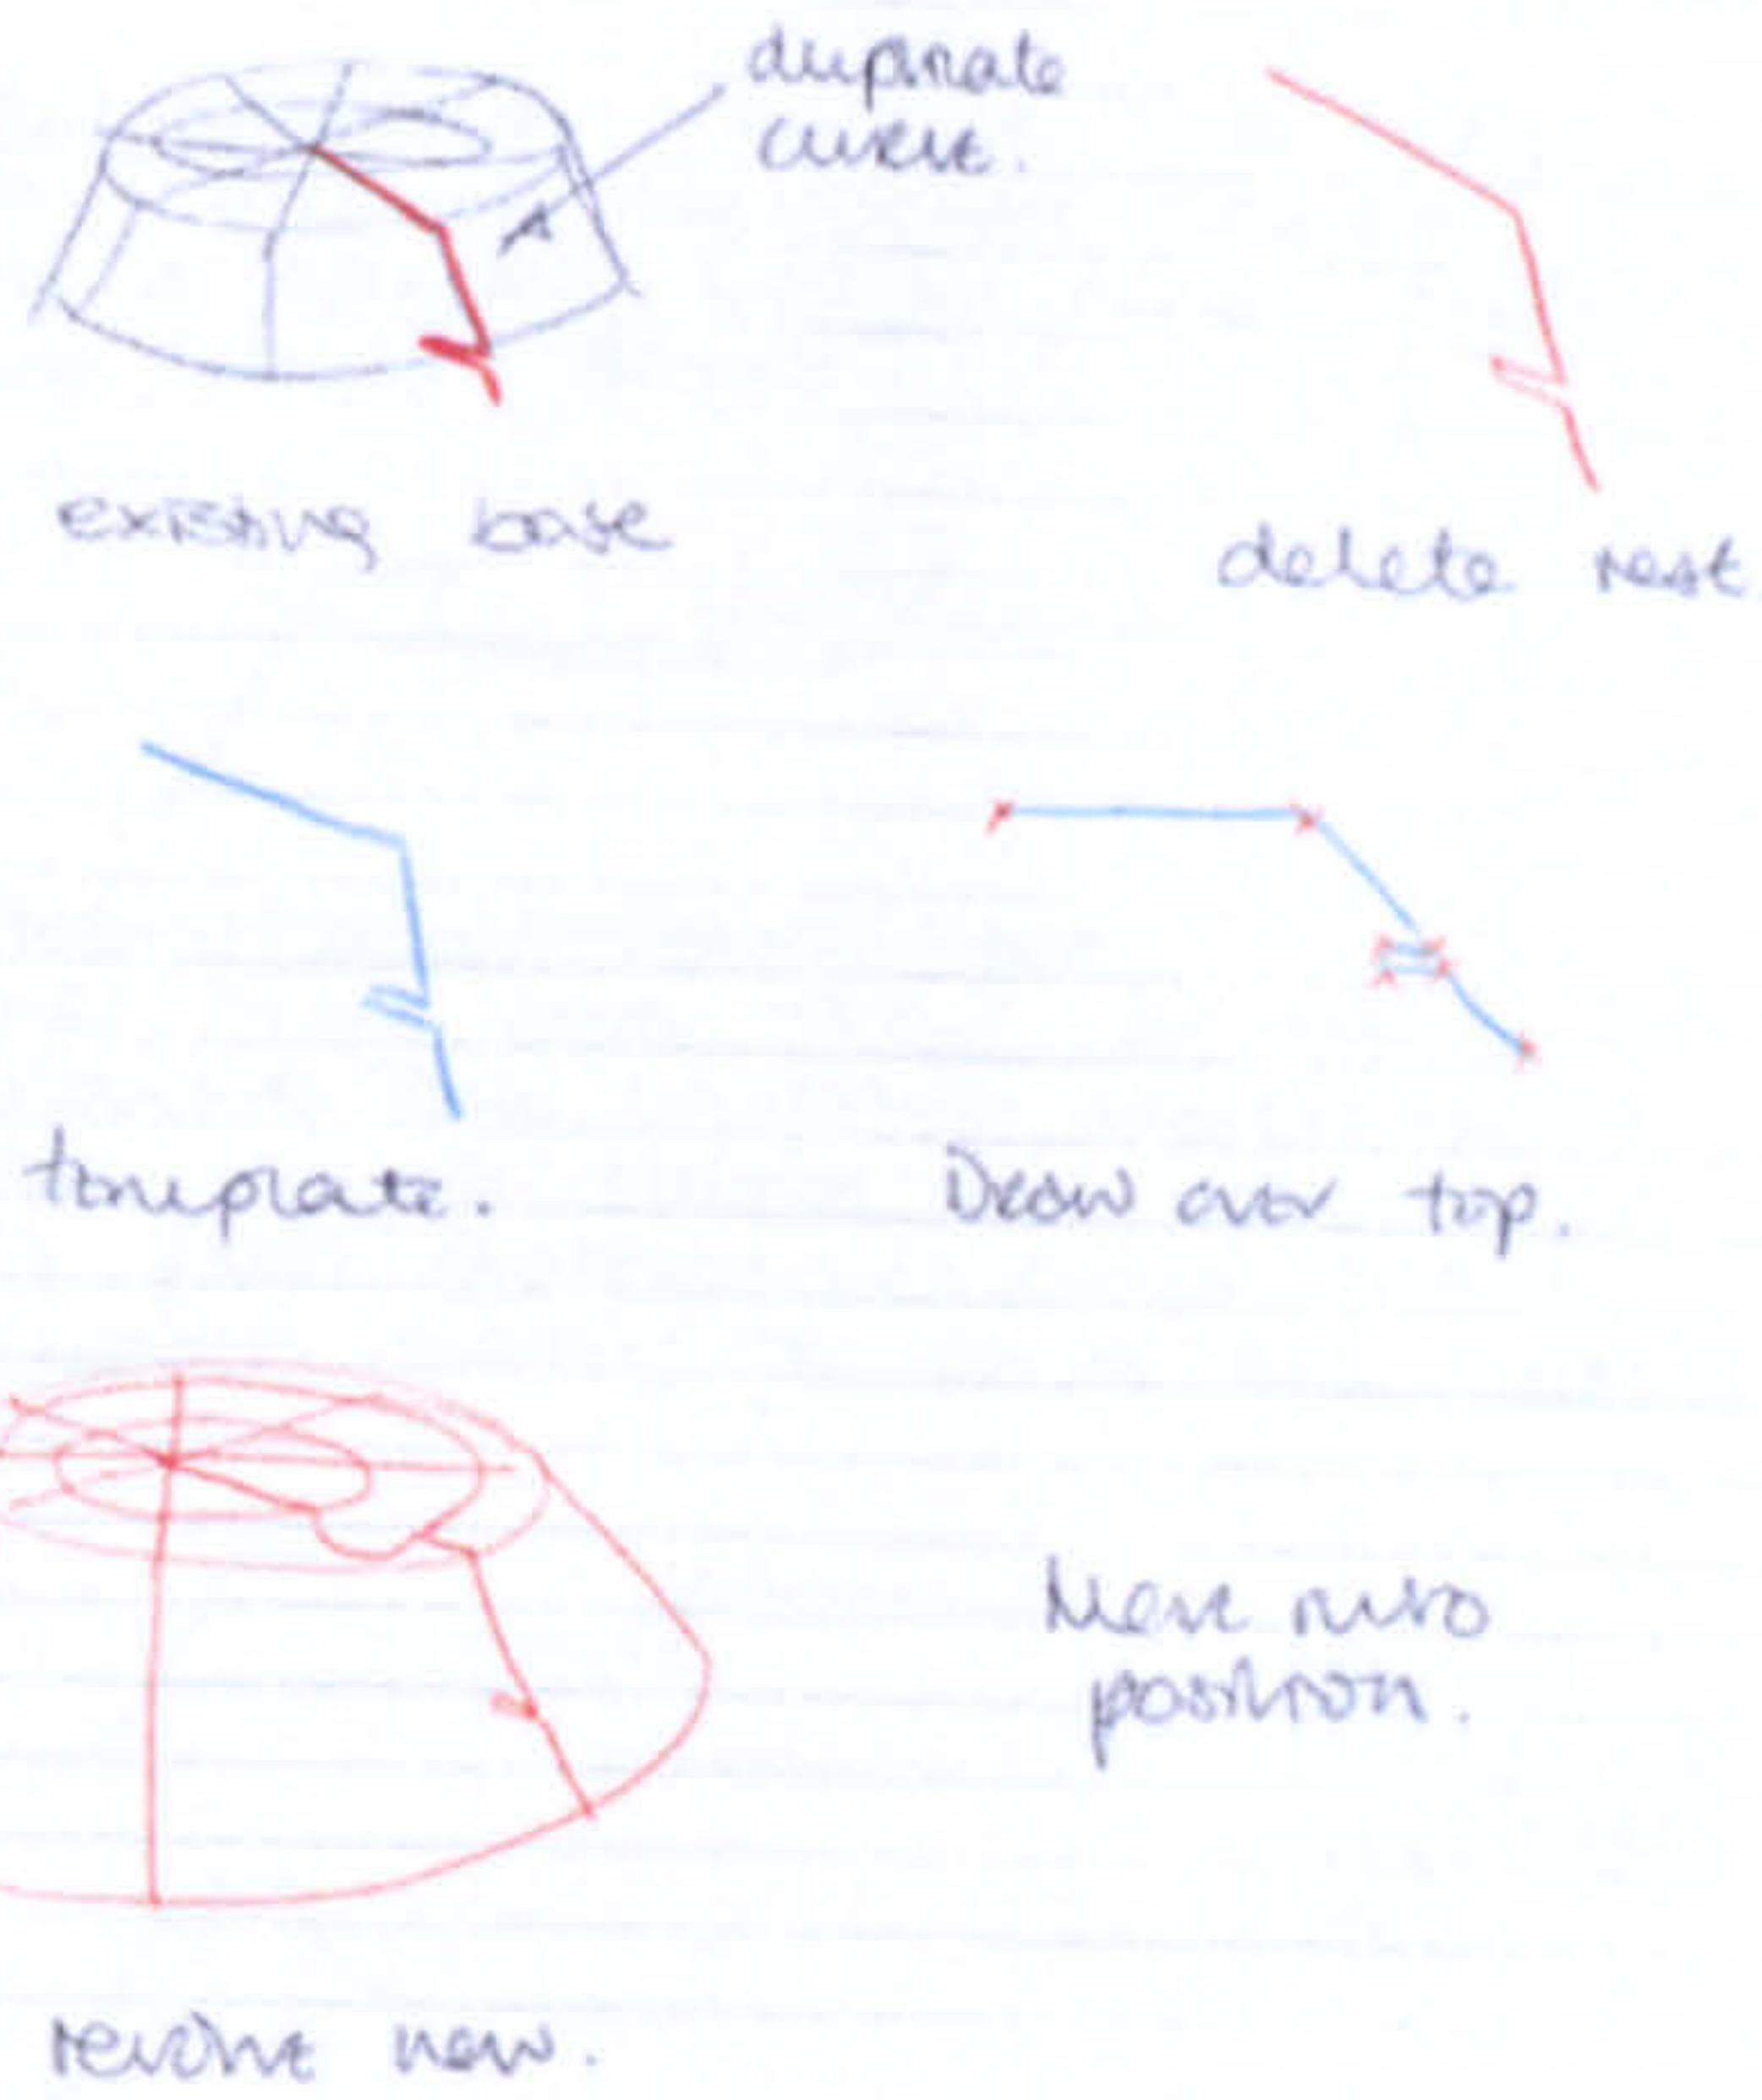 duplicate
curve.
existing base
delete rest
template.
Draw over top.
Move into
position.
revolve new.